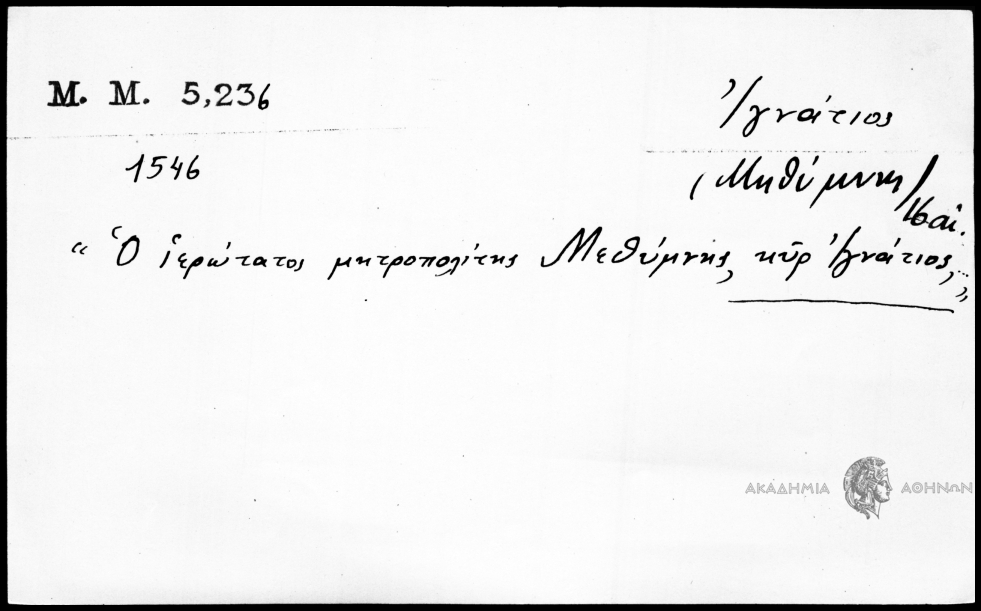 M. M. 5,236
Ἰγνάτιος
1546
(Μηθύμνης)
16 αἰ.
“ Ὁ ἱερώτατος μητροπολίτης Μεθύμνης, κῦρ Ἰγνάτιος,...”
ΑΚΑΔΗΜΙΑ ΑΘΗΝΩΝ